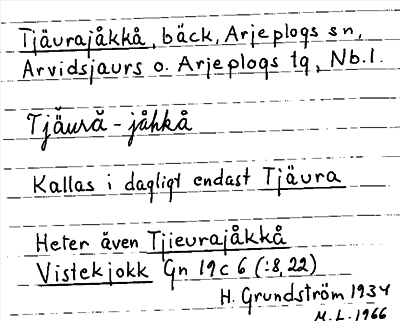 Tjäurajåkkå, bäck, Arjeplogs sn,
Arvidsjaurs o. Arjeplogs tg, Nb.l.
Tjä̆ură̄ - jåhkå
Kallas i dagligt endast Tjäura
Heter även Tjieurajåkkå
Vistekjokk Gn 19c 6 (:8,22)
H. Grundström 1934
M.L. 1966